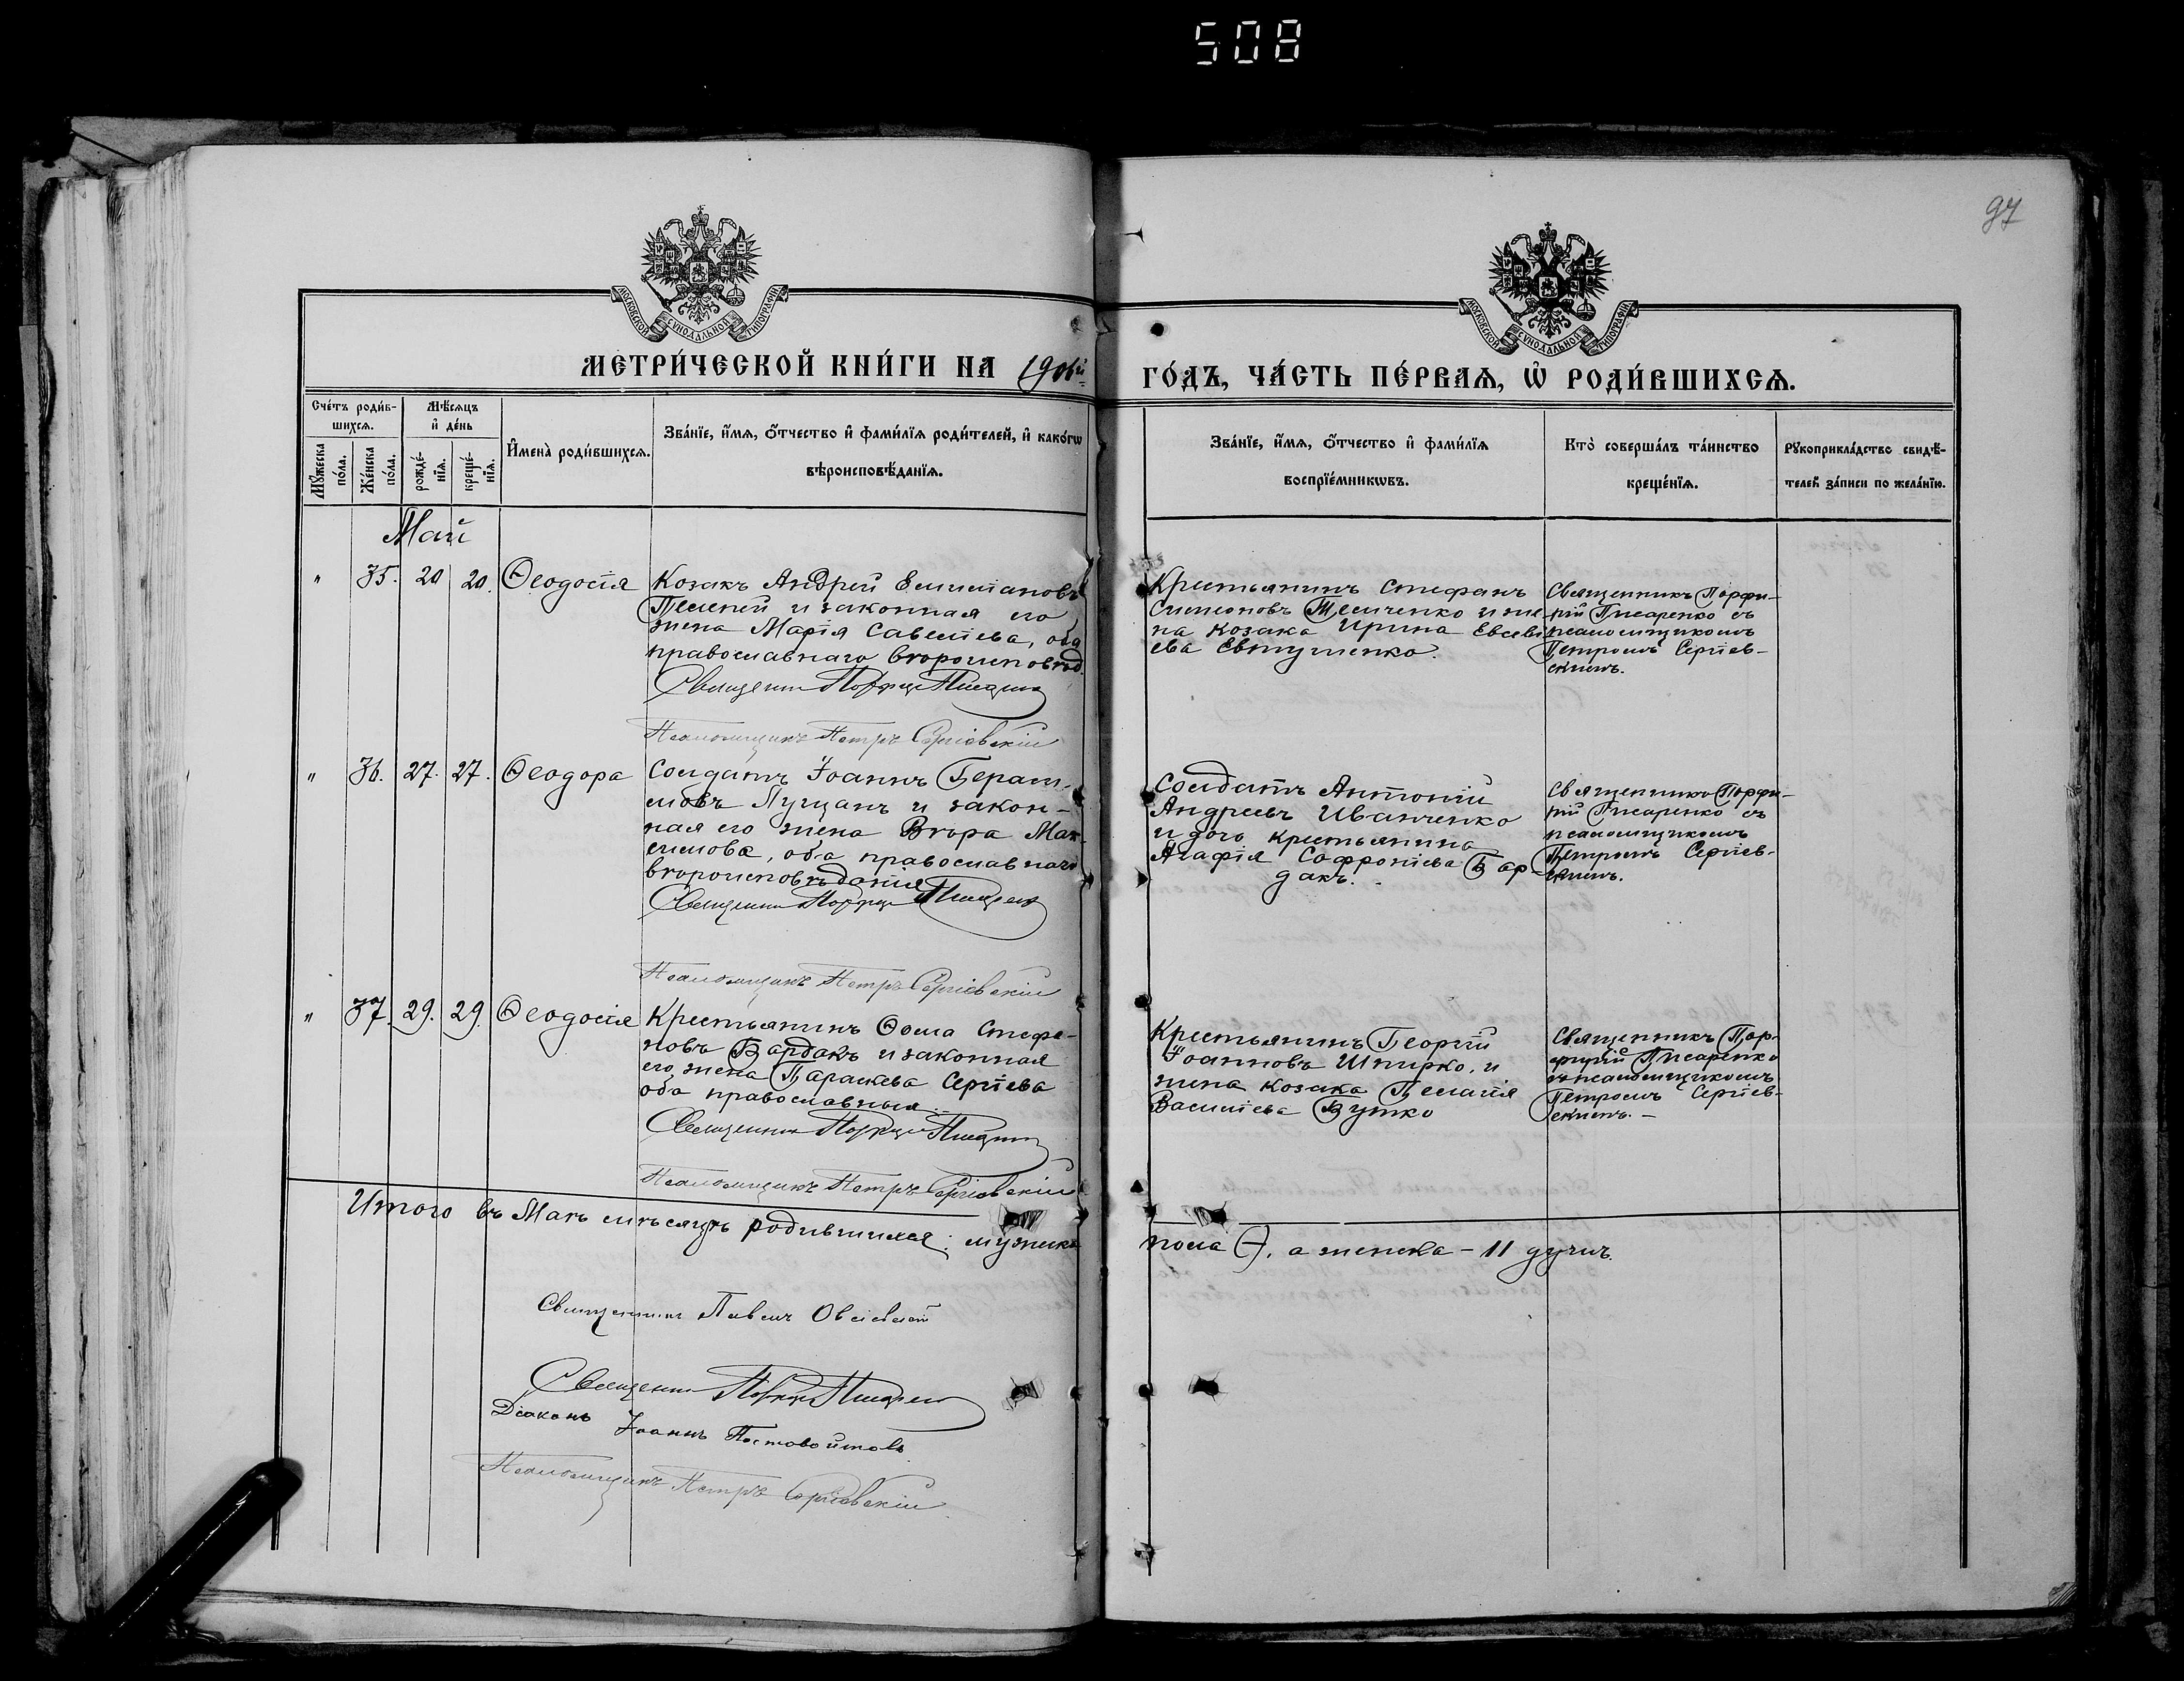 508
97
МОСКОВСКОЙ СѴНОДАЛЬНОЙ ТИПОГРАФІИ
МОСКОВСКОЙ СѴНОДАЛЬНОЙ ТИПОГРАФІИ
МЕТРИ́ЧЕСКОЙ КНИ́ГИ НА 1906й
ГО́ДЪ, ЧА́СТЬ ПЕ́РВАѦ, Ѡ҆ РОДИ́ВШИХСѦ.
Сче́тъ роди́в-
шихсѧ.
Мꙋ́жеска по́ла.
Же́нска по́ла.
Мѣ́сѧцъ и҆ де́нь
рожде́-нїѧ.
креще́-нїѧ.
И҆мена̀ роди́вшихсѧ.
Зва́нїе, и҆́мѧ, ѻ҆́тчество и҆ фами́лїѧ роди́телей, и҆ како́гѡ
вѣроисповѣ́данїѧ.
Зва́нїе, и҆́мѧ, ѻ҆́тчество и҆ фами́лїѧ
воспрїе́мникѡвъ.
Кто̀ соверша́лъ та́инство
креще́нїѧ.
Рꙋкоприкла́дство свидѣ́-
телей за́писи по жела́нїю.
Май
" 35. 20 20. Ѳеодосія
Козакъ Андрей
и законная его
жена Марія Савелiева, оба
православнаго вѣроисповѣд.
Псаломщикъ Петръ Сергіевскій
Крестьянинъ Стефанъ
Симеоновъ и же-
на козака Ирина Евсевi-
ева Евтушенко.
Священникъ Порфи-
рій Писаренко съ
псаломщикомъ
Петромъ Сергіев-
скимъ.
" 36. 27. 27. Ѳеодора
Солдатъ Іоаннъ Гераси-
мовъ Лущанъ и закон-
ная его жена Вѣра Мак-
симова, оба православнаго
вѣроисповѣданія
Псаломщикъ Петръ Сергіевскій
Солдатъ Антоній
Андреевъ Иванченко
и дочь крестьянина
Агафія Софроніева Бар-
дакъ.
Священникъ Порфи-
рій Писаренко съ
псаломщикомъ
Петромъ Сергіев-
скимъ.
" 37. 29. 29. Ѳеодосія
Крестьянинъ Ѳома Стефа-
новъ Бардакъ и законная
его жена Параскева Сергіева
оба православныя.
Псаломщикъ Петръ Сергіевскій
Крестьянинъ Георгій
Іоанновъ Шпирко, и
жена козака Пелагія
Василіева Бутко
Священникъ Пор-
фирій Писаренко
съ псаломщикомъ
Петромъ Сергіев-
скимъ. –
Итого въ Маѣ мѣсяцѣ родившихся: мужска
пола (–), а женска – 11 душъ.
Священникъ Павелъ
Діаконъ Іоаннъ Постовойтовъ
Псаломщикъ Петръ Сергіевскій